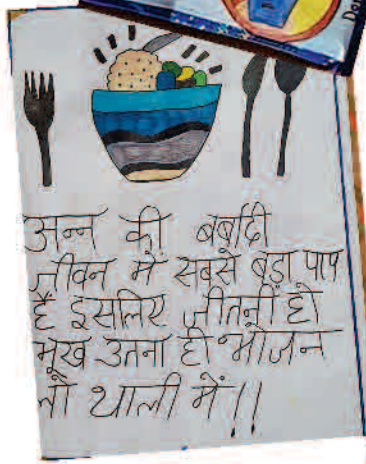 अन्न की बर्बादी
जीवन में सबसे बड़ा पाप
हैं इसलिए जीतनी हो
भूख उतना ही भोजन
लो थाली में!!